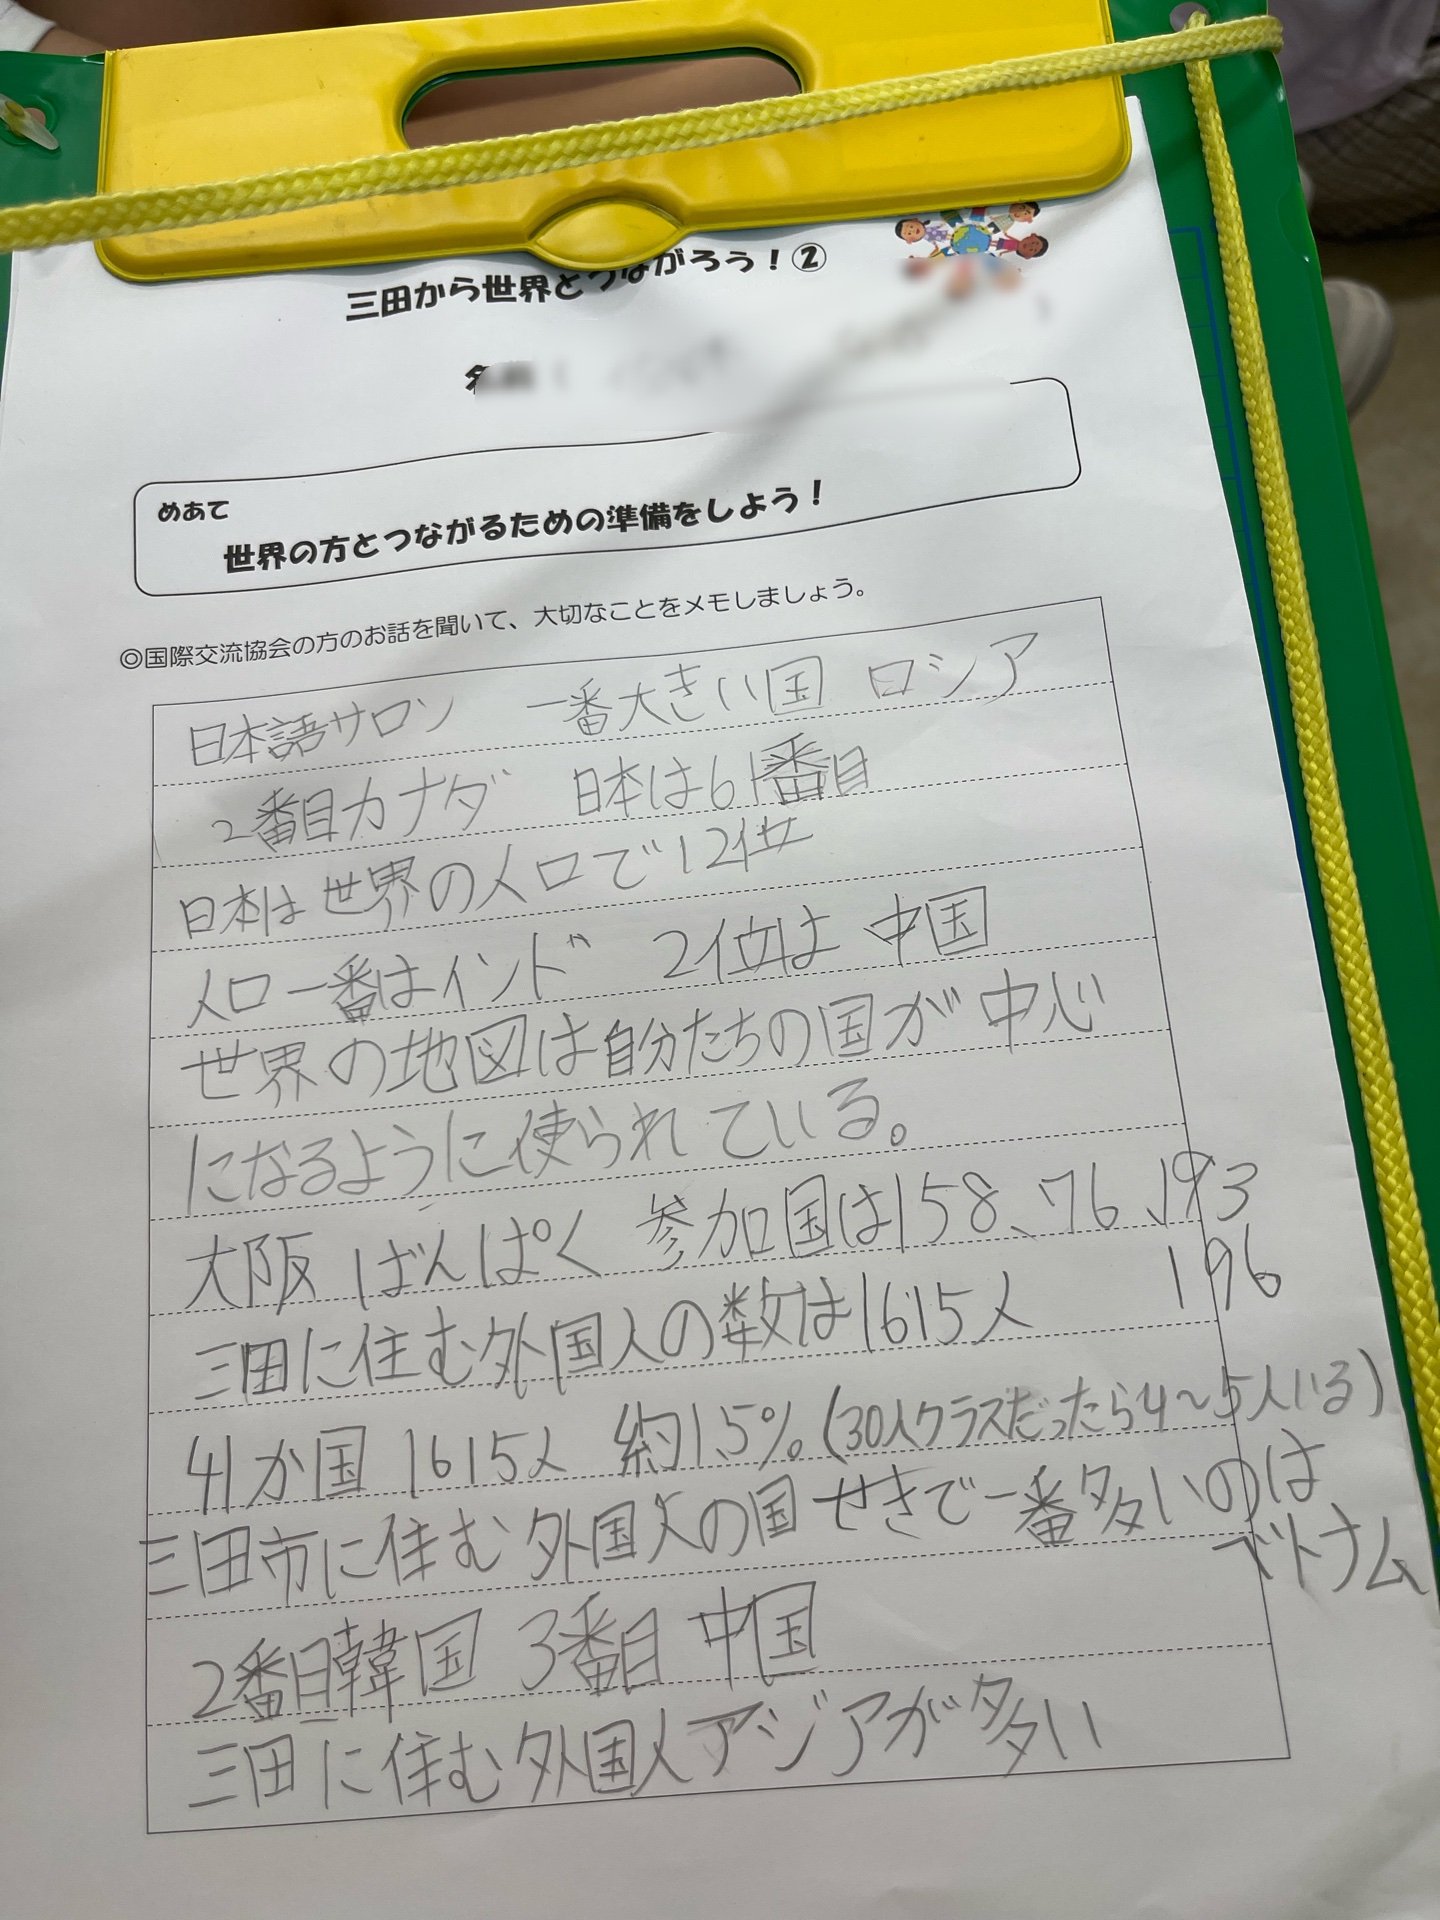 三田から世界とつながろう！②
めあて
世界の方とつながるための準備をしよう！
◎国際交流協会の方のお話を聞いて、大切なことをメモしましょう。
日本語サロン 一番大きい国 ロシア
2番目カナダ 日本は61番目
日本は世界の人口で12位
人口一番はインド 2位は中国
世界の地図は自分たちの国が中心
になるように使られている。
大阪ばんぱく 参加国は158、76、193
196
三田に住む外国人の数は1615人
41か国 1615人 約1.5%(30人クラスだったら4〜5人いる)
三田市に住む外国人の国せきで一番多いのは
ベトナム
2番目韓国 3番目中国
三田に住む外国人アジアが多い